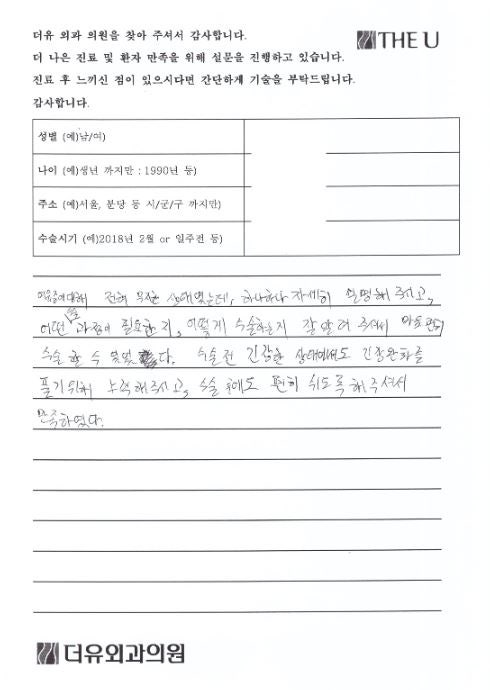 더유 외과 의원을 찾아 주셔서 감사합니다.
THE U
더 나은 진료 및 환자 만족을 위해 설문을 진행하고 있습니다.
진료 후 느끼신 점이 있으시다면 간단하게 기술을 부탁드립니다.
감사합니다.
성별 (예)남/여)
나이 (예)생년 까지만 : 1990년 등)
주소 (예)서울, 분당 등 시/군/구 까지만)
수술시기 (예)2018년 2월 or 일주전 등)
전혀 무지한 상태였는데, 하나하나 자세히 설명해 주시고,
어떤 과정이 필요한지, 어떻게 수술하는지 잘 알려 주셔서 마음 편히
수술 할 수 있었다. 수술전 긴장한 상태에서도 긴장완화를
풀기위해 노력해주시고, 수술 후에도 편히 쉬도록 해주셔서
만족하였다.
더유외과의원